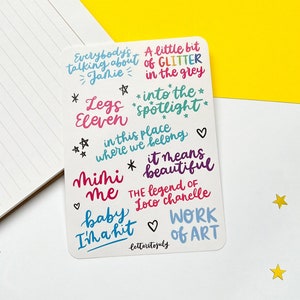 Everybody's
talking about
Jamie
A little bit
of GLITTER
in the grey
Legs
Eleven
into the
spotlight
in this place
where we belong
mimi
me
it means
beautiful
THE legend OF
Loco chanelle
baby
I'm a hit
WORK
OF ART
letteritsoly